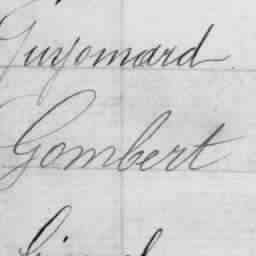 Guyomard
Gombert